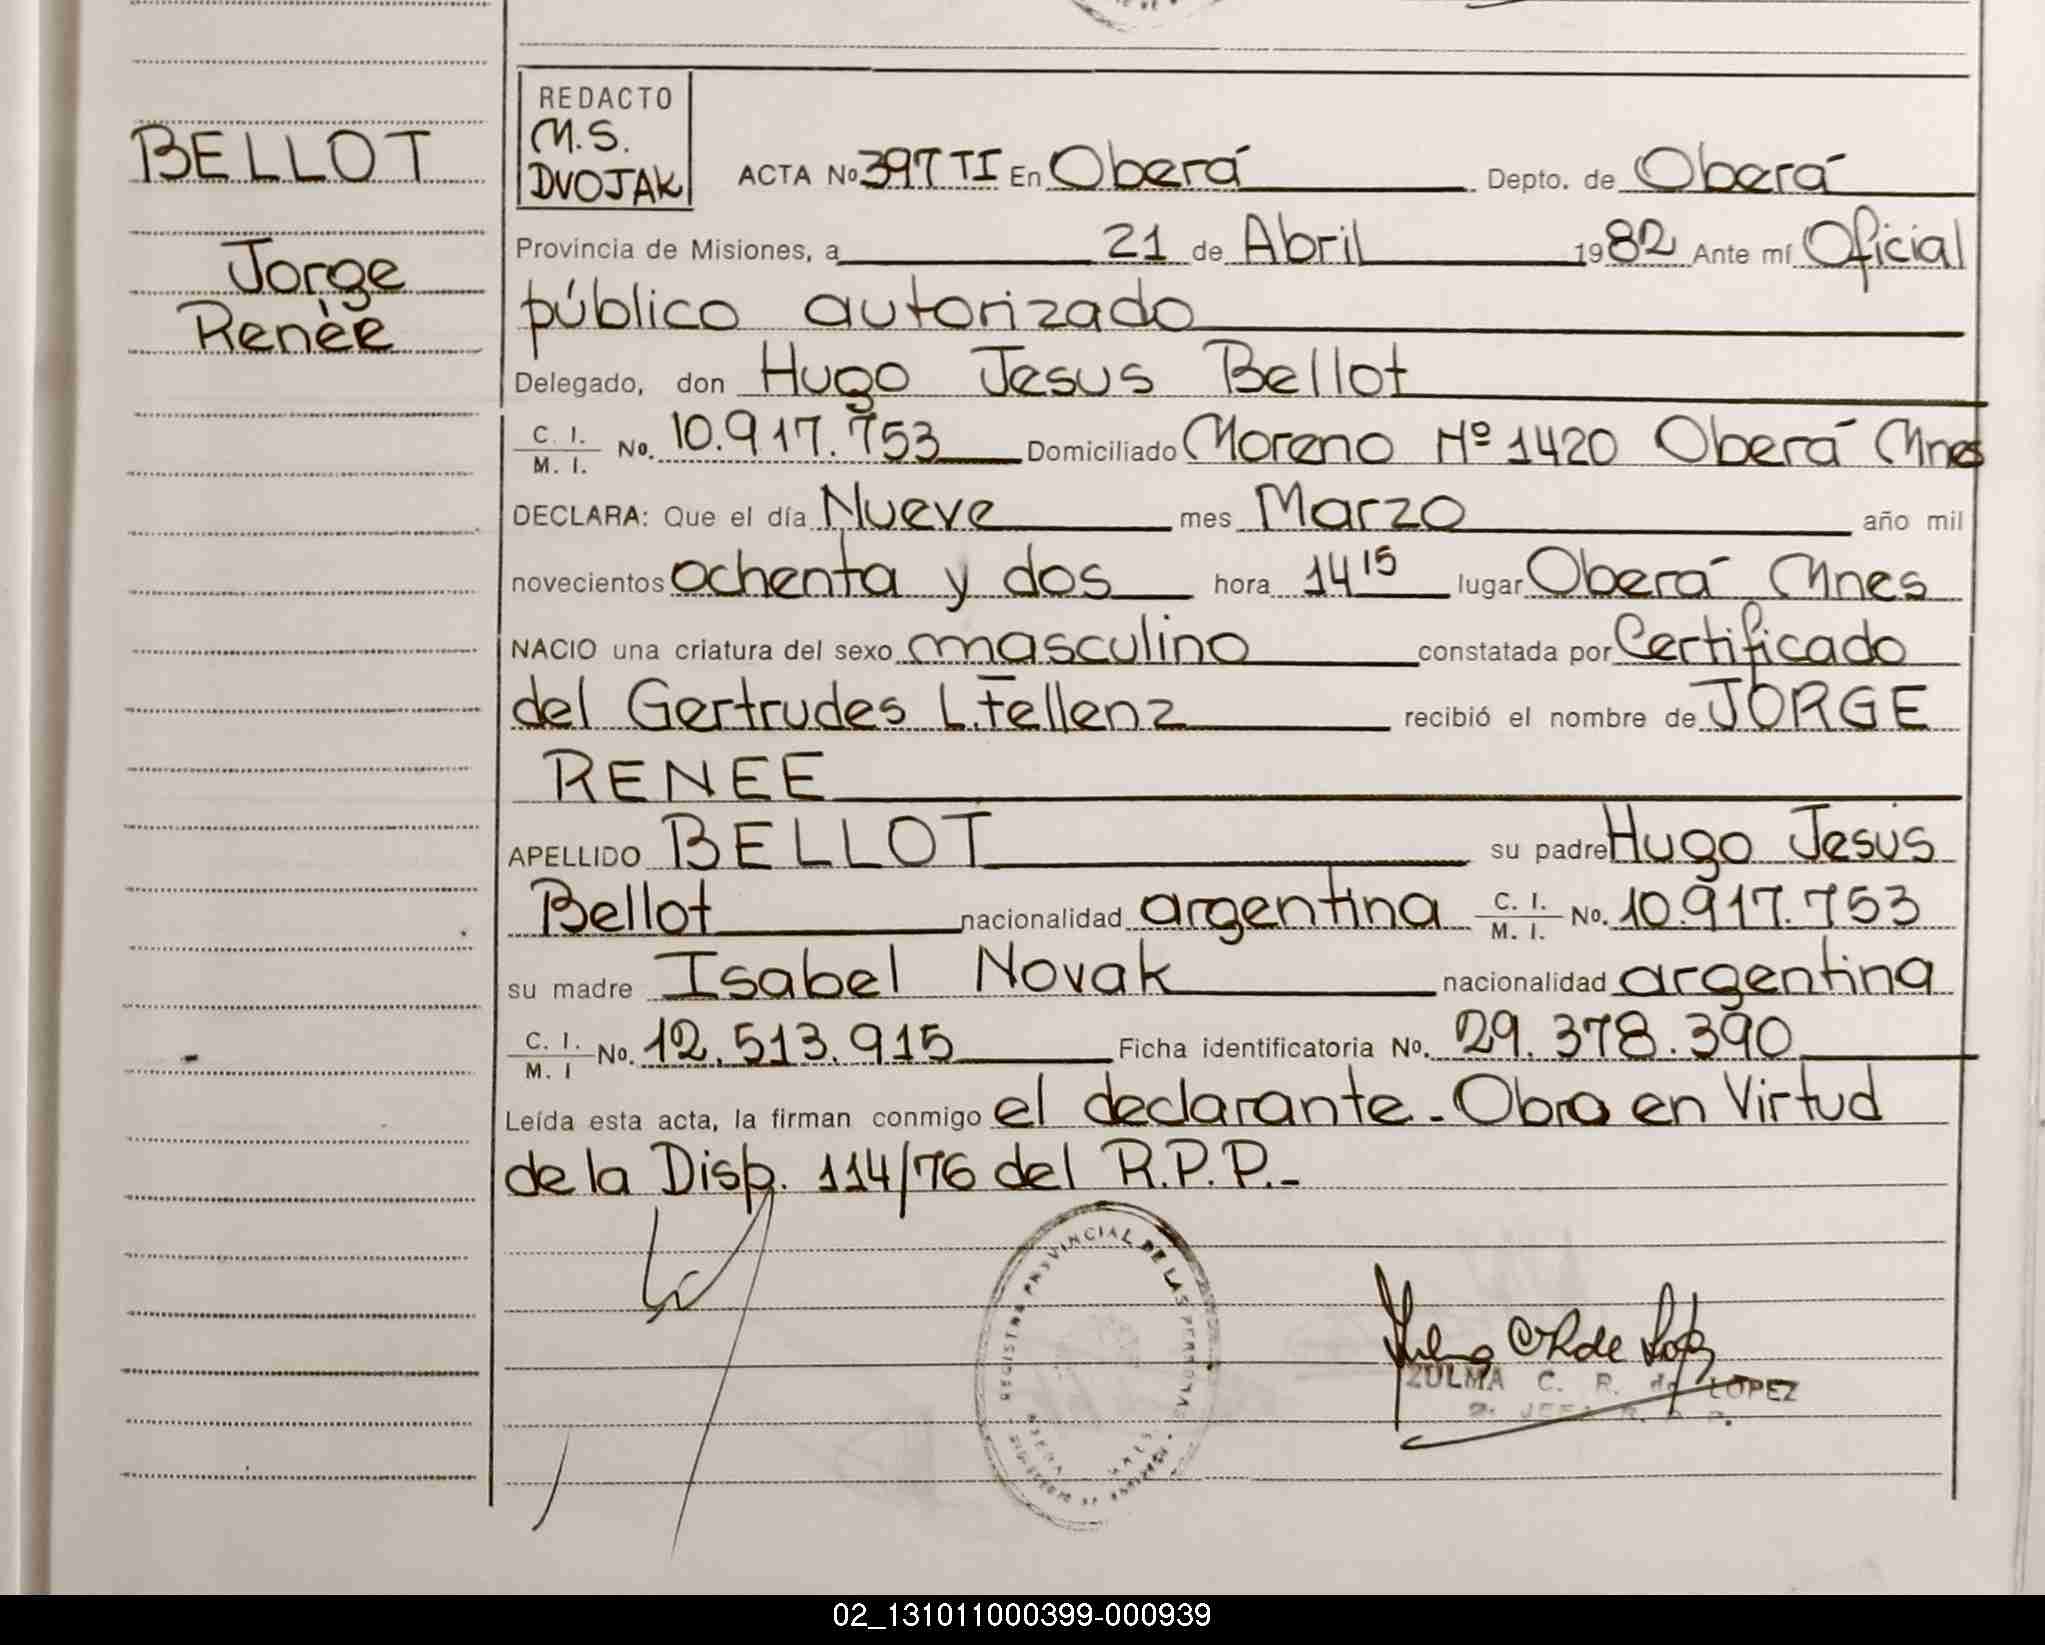 BELLOT
Jorge
Renèe
REDACTO
M.S.
DVOJAK
ACTA No 397 TI En Oberá Depto. de Oberá
Provincia de Misiones, a 21 de Abril 1982 Ante mí Oficial
público autorizado
Delegado, don Hugo Jesus Bellot
C. I. / M. I. No. 10.917.753 Domiciliado Moreno Nº 1420 Oberá Mnes
DECLARA: Que el día Nueve mes Marzo año mil
novecientos ochenta y dos hora 14 15 lugar Oberá Mnes
NACIO una criatura del sexo masculino constatada por Certificado
del Gertrudes L. Fellenz recibió el nombre de JORGE
RENEE
APELLIDO BELLOT su padre Hugo Jesús
Bellot nacionalidad argentina C. I. / M. I. No. 10.917.753
su madre Isabel Novak nacionalidad argentina
C. I. / M. I No. 12.513.915 Ficha identificatoria No. 29.378.390
Leída esta acta, la firman conmigo el declarante - Obra en Virtud
de la Disp. 114/76 del R.P.P.-
REGISTRO PROVINCIAL DE LAS PERSONAS
ZULMA C. R. de LOPEZ
02_131011000399-000939